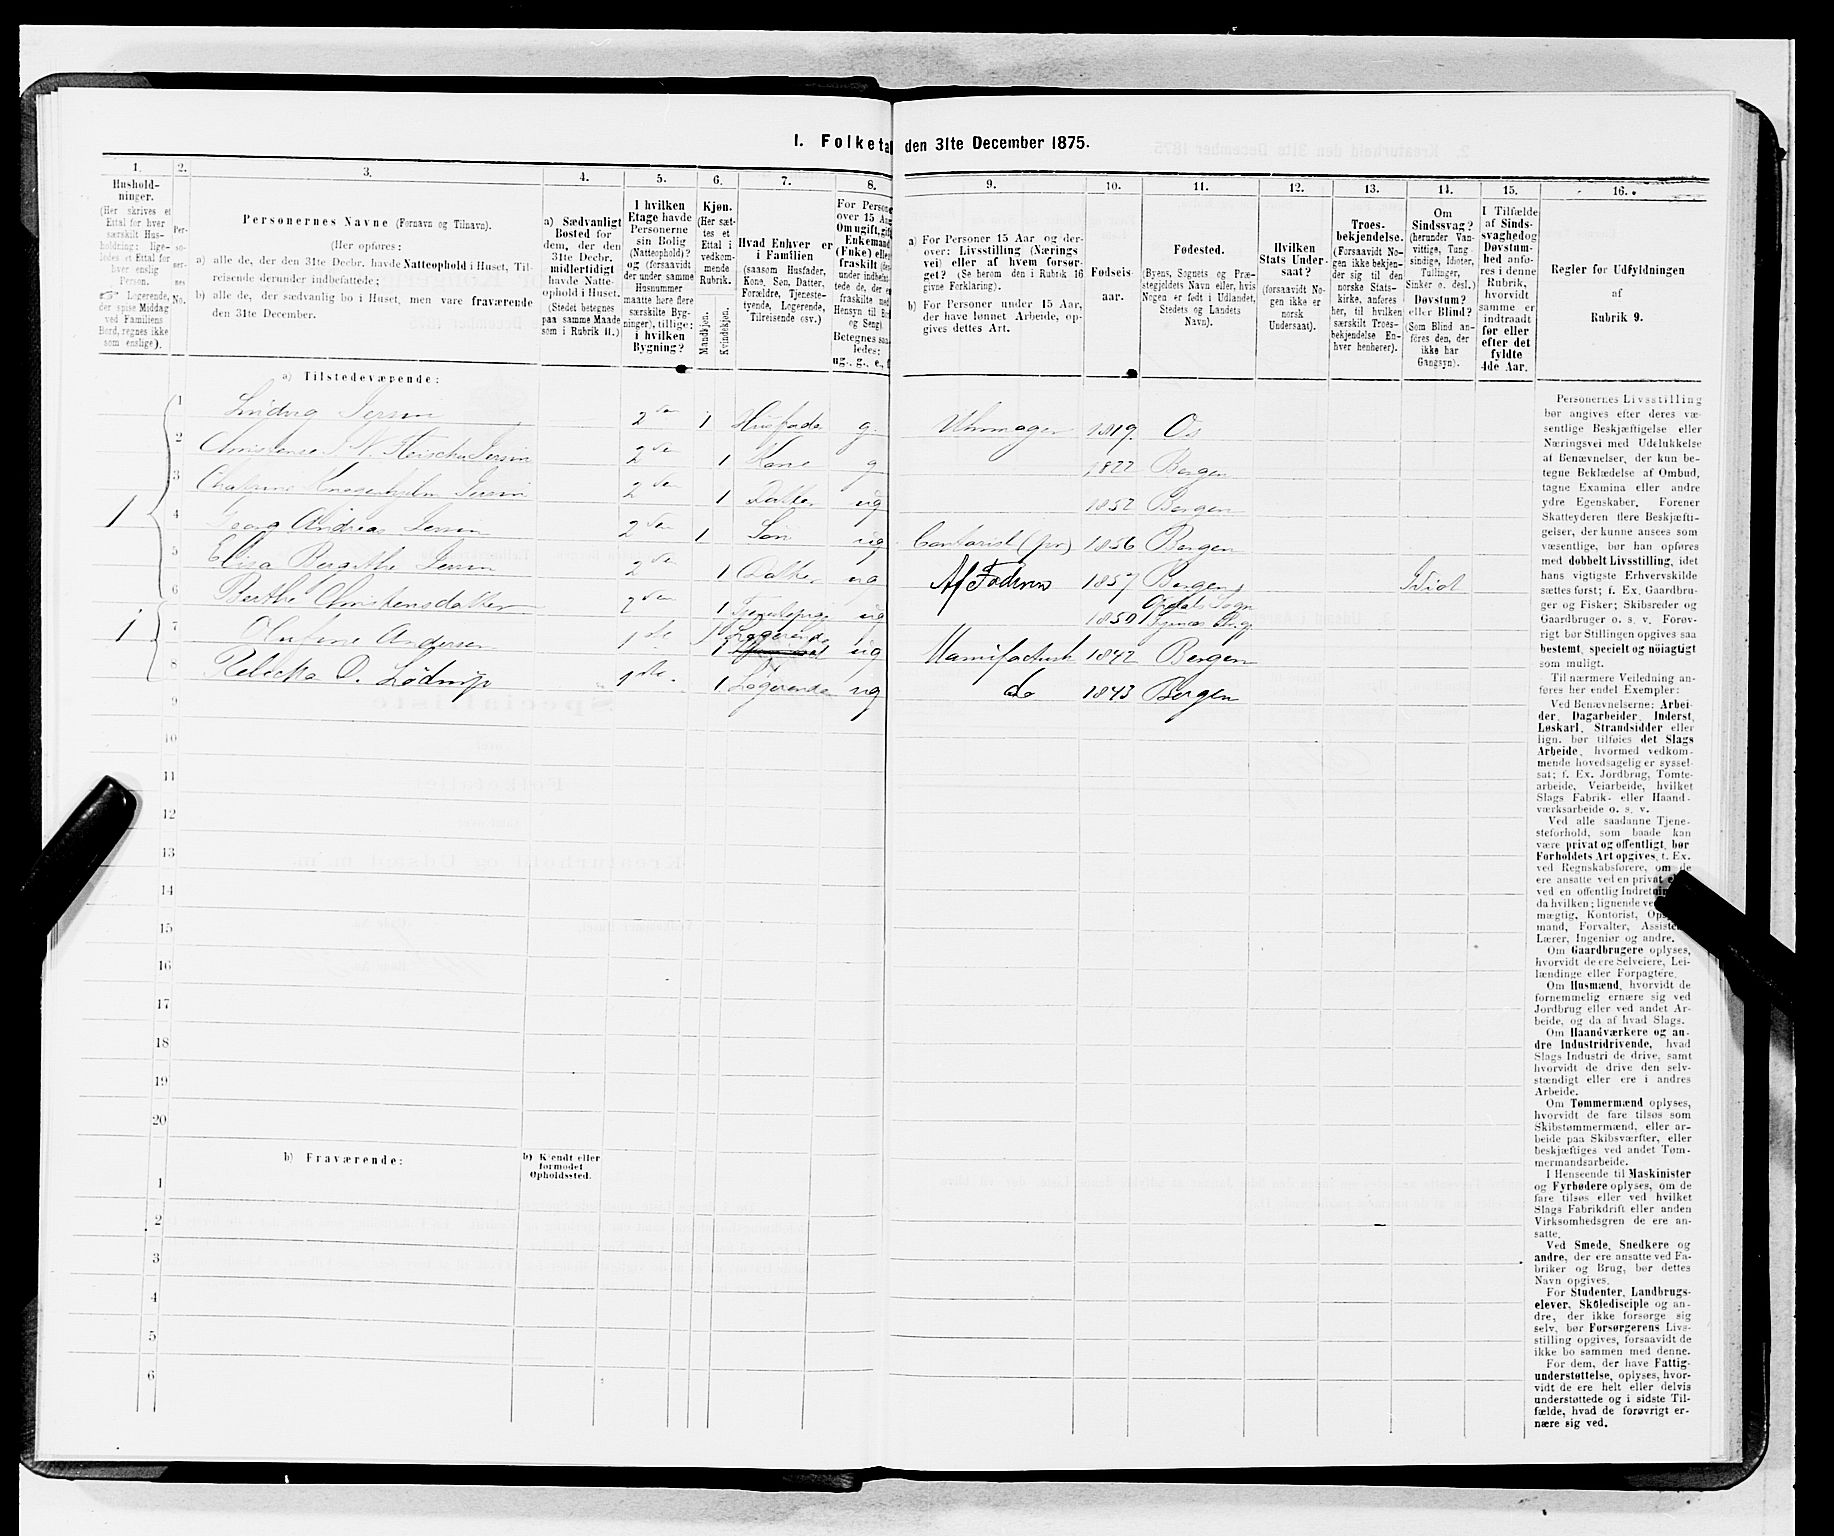 1. Folketal den 31te December 1875.
1.
Hushold-
ninger.
(Her skrives et
Ettal for hver
særskilt Hus-
holdning; lige-
ledes et Ettal for
hver enslig
Person.
☞ Logerende,
der spise Middag
ved Familiens
Bord, regnes ikke
som enslige).
2.
Per-
so-
ner-
nes
No.
3.
Personernes Navne (Fornavn og Tilnavn).
(Her opføres:
a) alle de, der den 31te Decbr. havde Natteophold i Huset, Til-
reisende derunder indbefattede;
b) alle de, der sædvanlig bo i Huset, men vare fraværende
den 31te December.
4.
a) Sædvanligt
Bosted for
dem, der den
31te Decbr.
midlertidigt
havde Natte-
ophold i Huset.
(Stedet betegnes
paa samme Maade
som i Rubrik 11.)
5.
I hvilken
Etage havde
Personerne
sin Bolig
(Natteophold)?
og (forsaavidt
der under samme
Husnummer
maatte høre flere
særskilte Byg-
ninger), tillige:
i hvilken
Bygning?
6.
Kjøn.
(Her sæt-
tes et
Ettal i
vedkom-
mende
Rubrik.
Mandkjøn.
Kvindekjøn.
7.
Hvad Enhver er
i Familien
(saasom Husfader,
Kone, Søn, Datter,
Forældre, Tjeneste-
tyende, Logerende,
Tilreisende osv.)
8.
For Persone
over 15 Aa
Om ugift, gif
Enkemand
(Enke) elle
fraskilt
9.
a) For Personer 15 Aar og der-
over: Livsstilling (Nærings
vei) eller af hvem forsør-
get? (Se herom den i Rubrik 16
givne Forklaring).
b) For Personer under 15 Aar,
der have lønnet Arbeide, op-
gives dettes Art.
10.
Fødsels-
aar.
11.
Fødested.
(Byens, Sognets og Præ-
stegjeldets Navn eller, hvis
Nogen er født i Udlandet,
Stedets og Landets
Navn).
12.
Hvilken
Stats Under-
saat?
(forsaavidt No-
gen ikke er
norsk
Undersaat).
13.
Troes-
bekjendelse.
(Forsaavidt No-
gen ikke bekjen-
der sig til den
norske Stats-
kirke, anføres
her, til hvilken
særskilt Troes-
bekjendelse En-
hver henhører).
14.
Om
Sindssvag?
(herunder Van-
vittige, Tung-
sindige, Idioter,
Tullinger,
Sinker o. desl.)
Døvstum?
eller Blind?
(Som Blind an-
føres den, der
ikke har
Gangsyn).
15.
I Tilfælde
af Sinds-
svaghed og
Døvstum-
hed anfø-
res i denne
Rubrik,
hvorvidt
samme er
indtraadt
før eller
efter det
fyldte
4de Aar.
16.
Regler for Udfyldningen
af
Rubrik 9.
a) Tilstedeværende:
1 Ludvig Jersin 2den 1 Husfader g. Uhrmager 1819. Os
2 Christense J. N. Jersin 2den 1 Kone g 1822 Bergen
3 Jersin 2den 1 Datter ug 1852 Bergen
1
4 Georg Andreas Jersin 2den 1 Søn ug Contorist (pr) 1856 Bergen
5 Elisa Jersin 2den 1 Datter ug Af Faderen 1857 Bergen Idiot
6 Berthe Christensdatter 2den 1 Tjenestepige ug 1850 Sogn
1
7 Olufine Andersen 1ste 1 Logerende ug 1842 Bergen
8 Rebekka D. Lødrup 1ste 1 Logerende ug do 1843 Bergen
9
10
11
12
13
14
15
16
17
18
19
20
b) Fraværende:
b) Kjendt eller
formodet
Opholdssted.
1
2
3
4
5
6
Personernes Livsstilling
bør angives efter deres væ-
sentlige Beskjæftigelse eller
Næringsvei med Udelukkelse
af Benævnelser, der kun be-
tegne Beklædelse af Ombud,
tagne Examina eller andre
ydre Egenskaber. Forener
Skatteyderen flere Beskjæfti-
gelser, der kunne ansees som
væsentlige, bør han opføres
med dobbelt Livsstilling, idet
hans vigtigste Erhvervskilde
sættes først; f. Ex. Gaardbru-
ger og Fisker; Skibsreder og
Gaardbruger o. s. v. Forøv-
rigt bør Stillingen opgives saa
bestemt, specielt og nöiagtigt
som muligt.
Til nærmere Veiledning an-
føres her endel Exempler:
Ved Benævnelserne: Arbei-
der, Dagarbeider, Inderst,
Løskarl, Strandsidder eller
lign. bør tilføies det Slags
Arbeide, hvormed vedkom-
mende hovedsagelig er syssel-
sat; f. Ex. Jordbrug, Tomte-
arbeide, Veiarbeide, hvilket
Slags Fabrik- eller Haand-
værksarbeide o. s. v.
Ved alle saadanne Tjene-
steforhold, som baade kan
være privat og offentligt, bør
Forholdets Art opgives, f. Ex.
ved Regnskabsførere, om de
ere ansatte ved en privat
ved en offentlig Indretning
da hvilken; lignende ved
mægtig, Kontorist,
mand, Forvalter,
Lærer, Ingeniør og andre.
Om Gaardbrugere oplyses,
hvorvidt de ere Selveiere, Lei-
lændinge eller Forpagtere.
Om Husmænd, hvorvidt de
fornemmelig ernære sig ved
Jordbrug eller ved andet Ar-
beide, og da af hvad Slags.
Om Haandværkere og an-
dre Industridrivende, hvad
Slags Industri de drive, samt
hvorvidt de drive den selv-
stændigt eller ere i andres
Arbeide.
Om Tømmermænd oplyses,
hvorvidt de fare tilsøs som
Skibstømmermænd, eller ar-
beide paa Skibsværfter, eller
beskjæftiges ved andet Tøm-
mermandsarbeide.
I Henseende til Maskinister
og Fyrbødere oplyses, om de
fare tilsøs eller ved hvilket
Slags Fabrikdrift eller anden
Virksomhedsgren de ere an-
satte.
Ved Smede, Snedkere og
andre, der ere ansatte ved Fa-
briker og Brug, bør dettes
Navn opgives.
For Studenter, Landbrugs-
elever, Skoledisciple og an-
dre, der ikke forsørge sig
selv, bør Forsørgerens Livs-
stilling opgives, forsaavidt de
ikke bo sammen med denne.
For dem, der have Fattig-
understøttelse, oplyses, hvor-
vidt de ere helt eller delvis
understøttede og i sidste Til-
fælde, hvad de forøvrigt er-
nære sig ved.